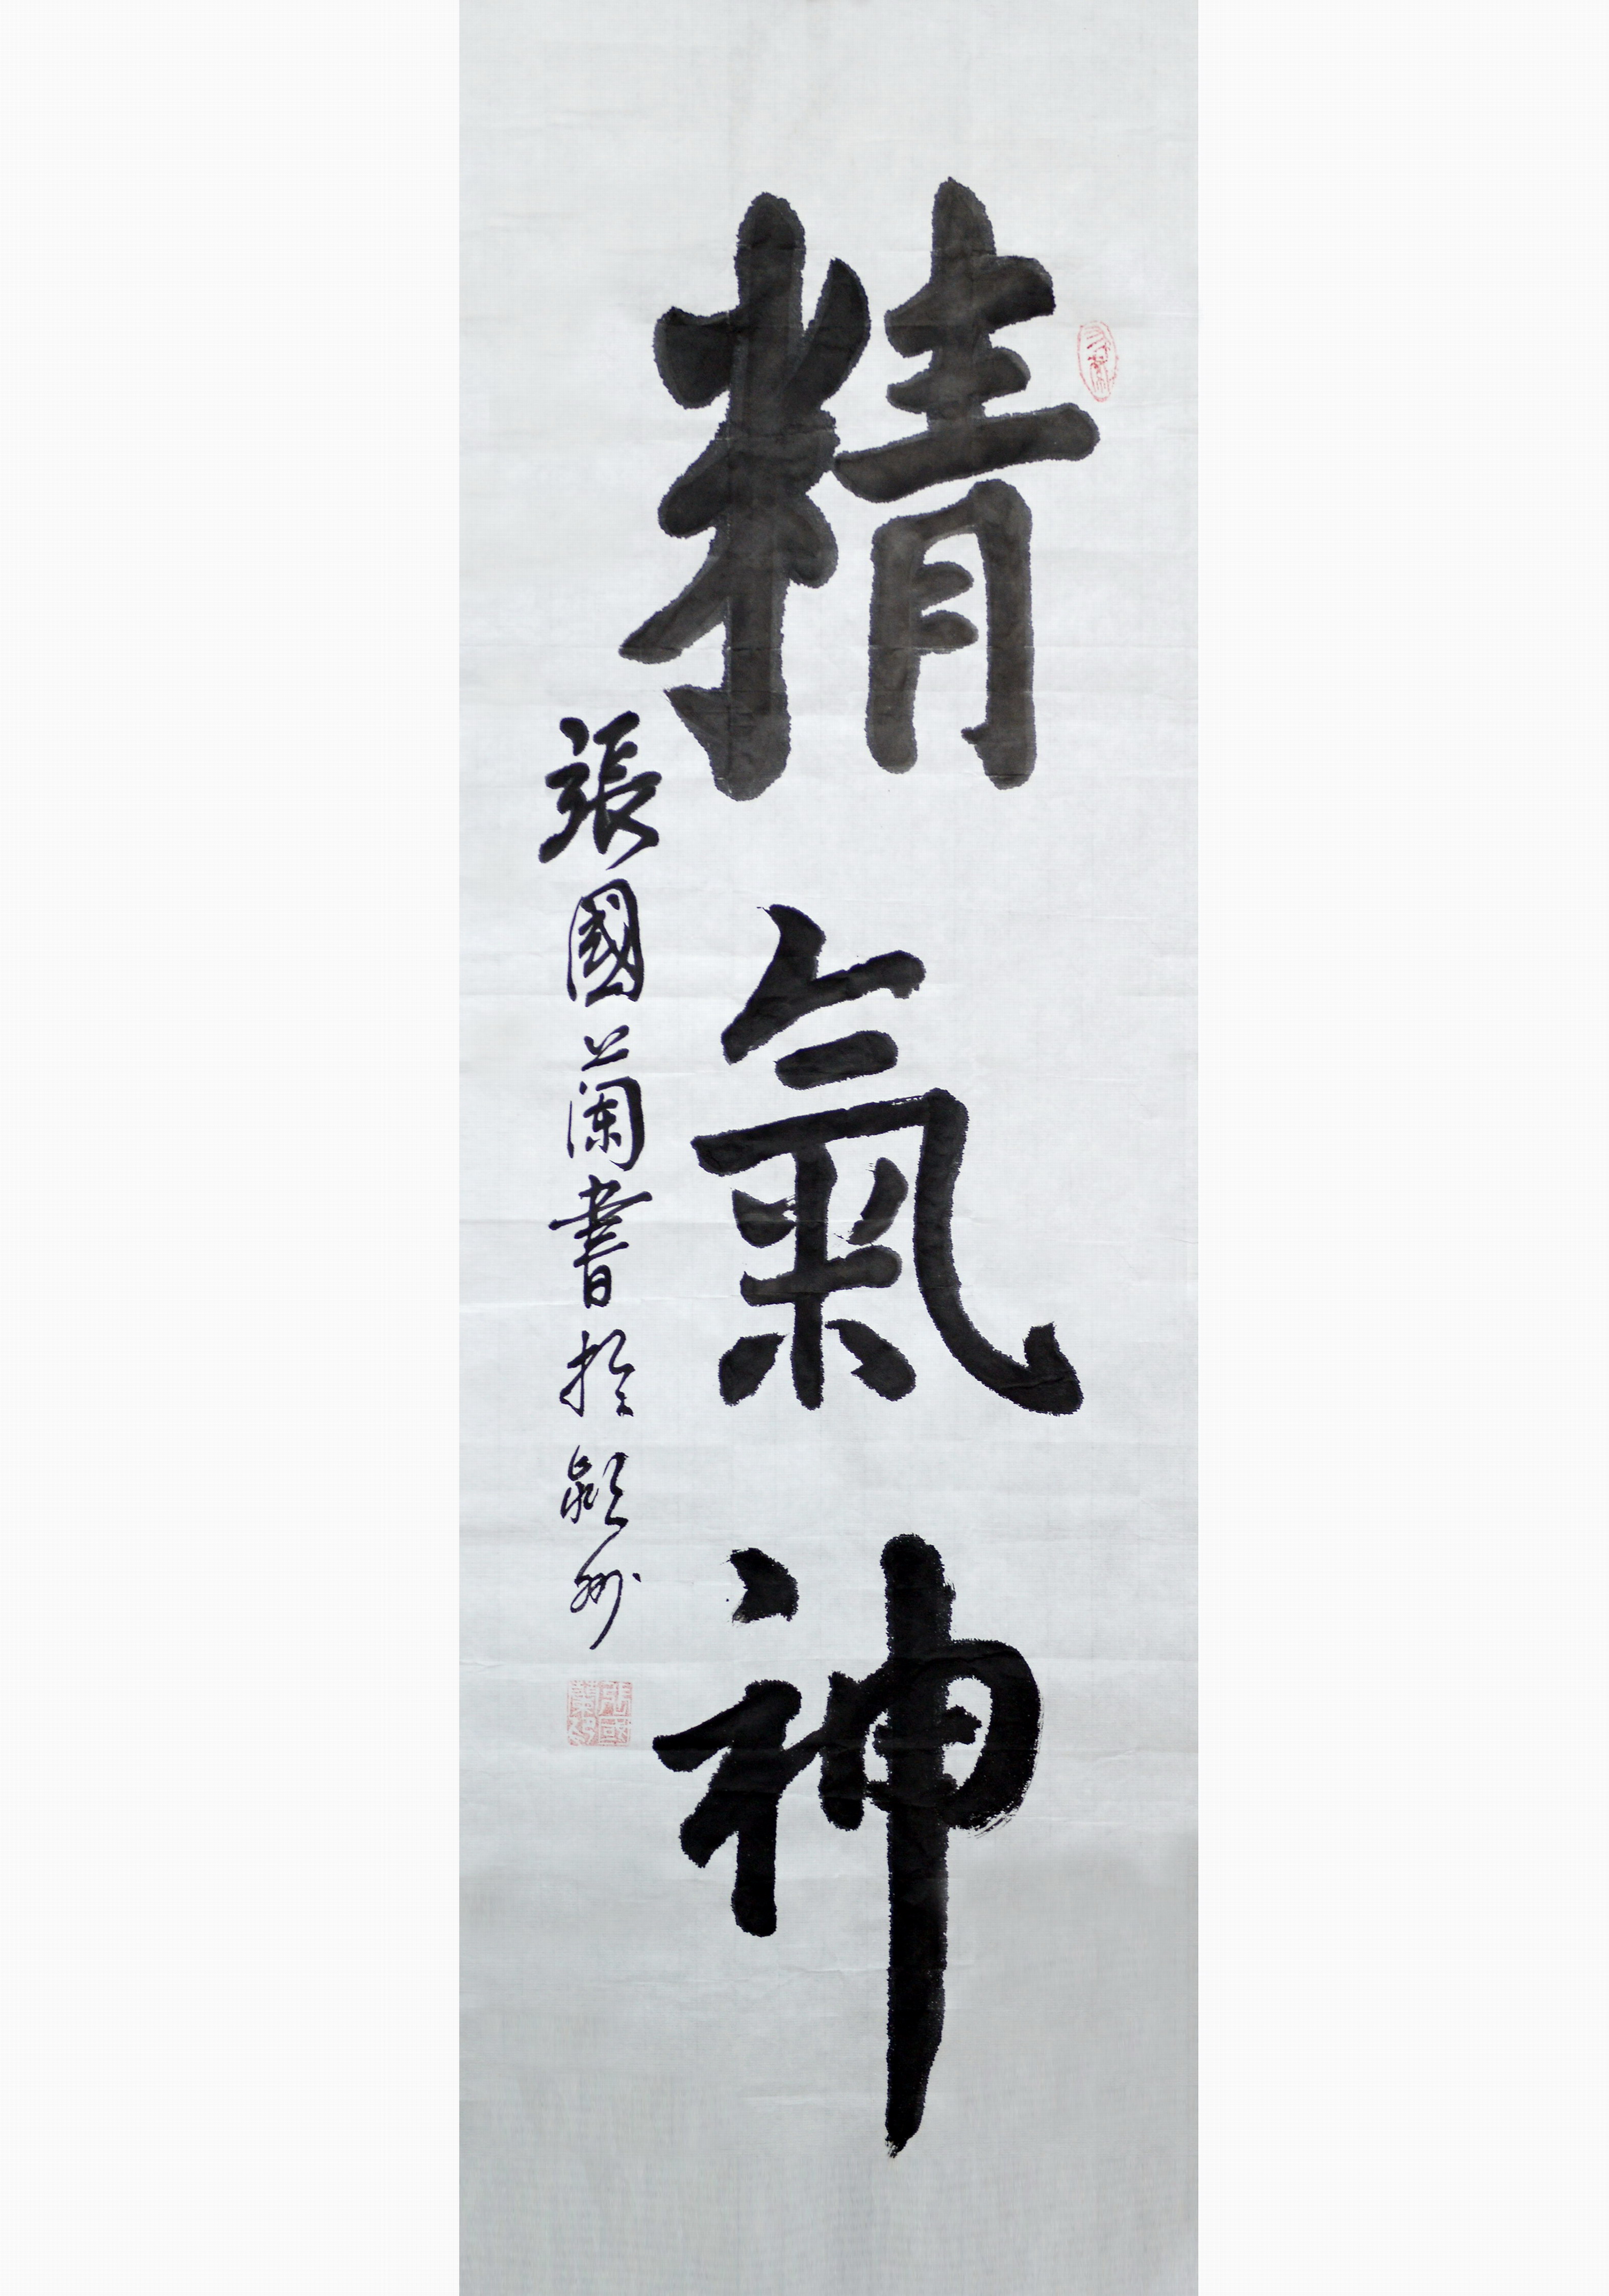 精氣神
張國蘭書於潁州
張國蘭印